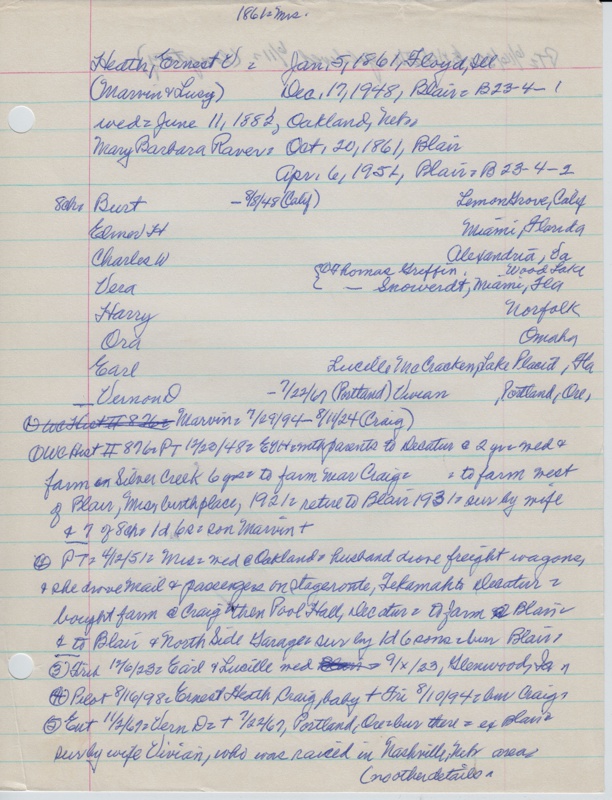 1861= Mrs.
Heath, Ernest V = Jan. 5, 1861, Floyd, Ill
(Marvin & Lucy) Dec. 17, 1948, Blair = B23-4-1
wed = June 11, 1882, Oakland, Nebr
Mary Barbara Raver = Oct. 20, 1861, Blair
Apr. 6, 1951, Blair = B23-4-2
8ch= Burt - 8/8/48 (Calif) Lemon Grove, Calif
Elmer H Miami, Florida
Charles W Alexandria, Va
Vera Thomas Griffin, Wood Lake
— Snowerdt, Miami, Fla
Harry Norfolk
Ora Omaha
Earl Lucille McCracken, Lake Placid, Fla
Vernon D - 7/22/67 (Portland) Vivian, Portland, Ore,
Marvin = 7/29/94 - 8/11/24 (Craig)
① WC Hist II 876= PT 12/20/48= EVH= with parents to Decatur @ 2 yrs= wed &
farm on Silver Creek 6 yrs= to farm near Craig= = to farm west
of Blair, Mrs birthplace, 1921= retire to Blair 1931= sur by wife
& 7 of 8ch= 1d 6s= son Marvin +
PT= 4/12/51= Mrs= wed @ Oakland= husband drove freight wagons,
& she drove mail & passengers on stageroute, Tekamah to Decatur=
bought farm @ Craig then Pool Hall, Decatur= to farm @ Blair=
& to Blair & North Side Garage= sur by 1d 6 sons= bur Blair=
③ 12/6/23= Earl & Lucille wed 9/x/23, Glenwood, Ia
④ Pilot 8/16/98= Ernest Heath, Craig, baby + Fri 8/10/94= bur Craig=
⑤ Ent 11/2/67= Vern D= + 7/22/67, Portland, Ore= bur there= ex Blair=
sur by wife Vivian, who was raised in Nashville, Nebr area=
(no other details=